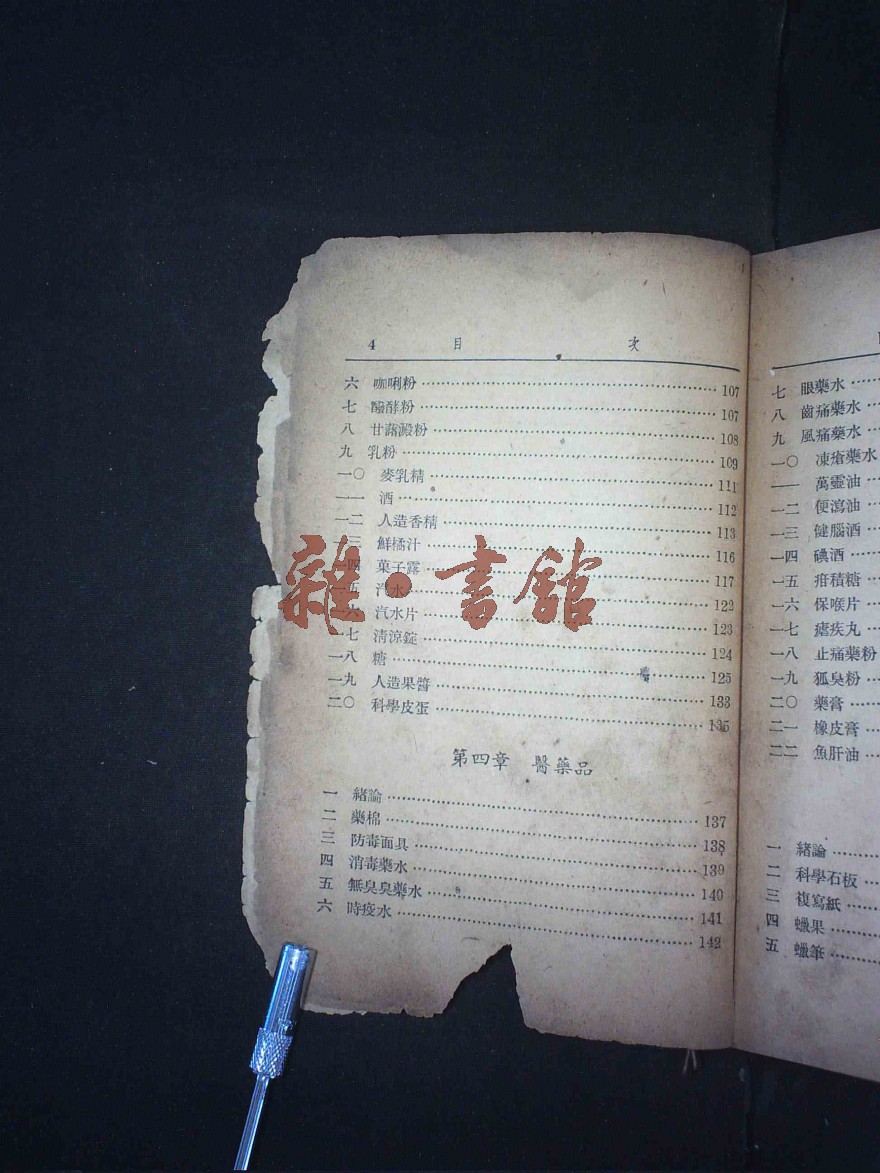 4 目 次
六 咖唎粉 107
七 醱酵粉 107
八 甘藷澱粉 108
九 乳粉 109
一〇 麥乳精 111
一一 酒 112
一二 人造香精 113
一三 鮮橘汁 116
一四 菓子露 117
一五 汽水 122
一六 汽水片 123
一七 淸涼錠 124
一八 糖 125
一九 人造果醬 133
二〇 科學皮蛋 135
第四章 醫藥品
一 緒論 137
二 藥棉 138
三 防毒面具 139
四 消毒藥水 140
五 無臭臭藥水 141
六 時疫水 142
七 眼藥水
八 齒痛藥水
九 風痛藥水
一〇 凍瘡藥水
一一 萬靈油
一二 便瀉油
一三 健腦酒
一四 碘酒
一五 疳積糖
一六 保喉片
一七 瘧疾丸
一八 止痛藥粉
一九 狐臭粉
二〇 藥膏
二一 橡皮膏
二二 魚肝油
一 緒論
二 科學石板
三 複寫紙
四 蠟果
五 蠟筆
雜·書館